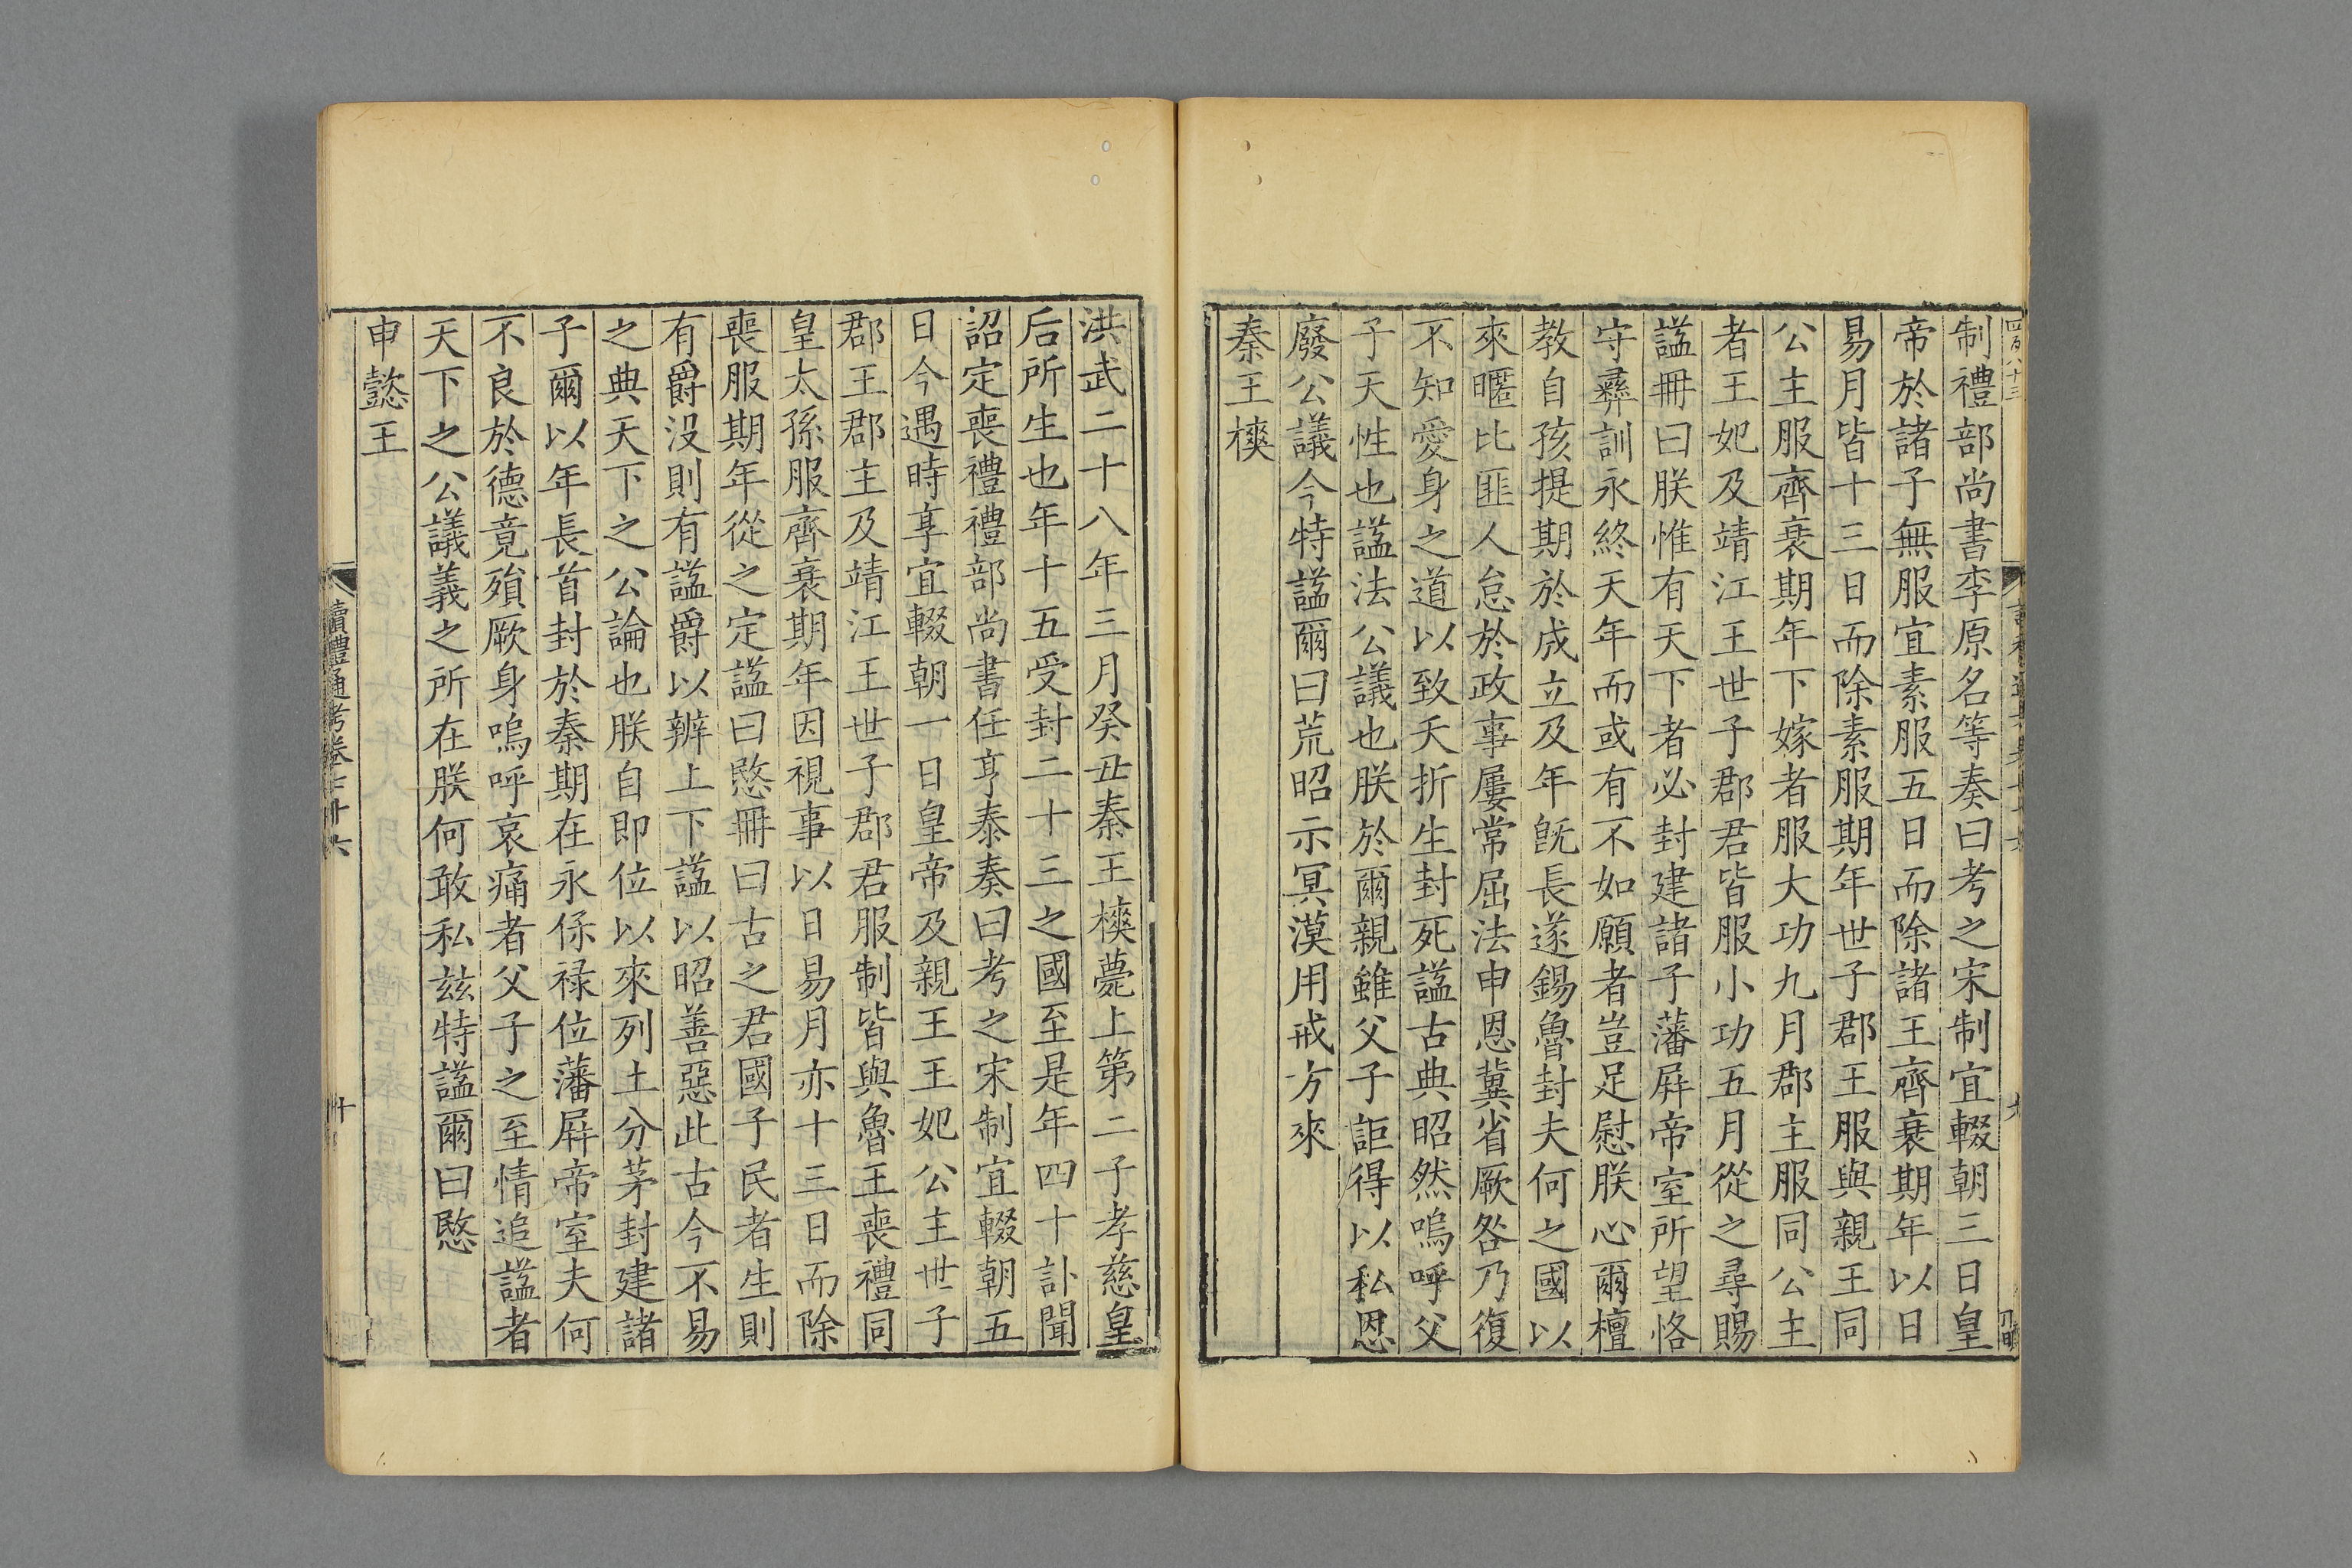 制禮部尚書李原名等奏曰考之宋制宜輟朝三日皇
帝於諸子無服宜素服五日而除諸王齊衰期年以日
易月皆十三日而除素服期年世子郡王服與親王同
公主服齊衰期年下嫁者服大功九月郡主服同公主
者王妃及靖江王世子郡君皆服小功五月從之尋賜
諡冊曰朕惟有天下者必封建諸子藩屏帝室所望恪
守彞訓永終天年而或有不如願者豈足慰朕心爾檀
教自孩提期於成立及年旣長遂錫魯封夫何之國以
來暱比匪人怠於政事屢常屈法申恩冀省厥咎乃復
不知愛身之道以致夭折生封死諡古典昭然嗚呼父
子天性也諡法公議也朕於爾親雖父子詎得以私恩
廢公議今特諡爾曰荒昭示冥漠用戒方來
秦王樉
洪武二十八年三月癸丑秦王樉薨上第二子孝慈皇
后所生也年十五受封二十三之國至是年四十訃聞
詔定喪禮禮部尚書任亨泰奏曰考之宋制宜輟朝五
日今遇時享宜輟朝一日皇帝及親王王妃公主世子
郡王郡主及靖江王世子郡君服制皆與魯王喪禮同
皇太孫服齊衰期年因視事以日易月亦十三日而除
喪服期年從之定諡曰愍冊曰古之君國子民者生則
有爵没則有諡爵以辨上下諡以昭善惡此古今不易
之典天下之公論也朕自即位以來列土分茅封建諸
子爾以年長首封於秦期在永保禄位藩屏帝室夫何
不良於德竟殞厥身嗚呼哀痛者父子之至情追諡者
天下之公議義之所在朕何敢私兹特諡爾曰愍
申懿王
讀禮通考卷七十六